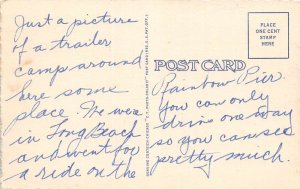 Just a picture
of a trailer
camp around
here some
place. We were
in Long Beach
and went for
a ride on the
POST CARD
PLACE
ONE CENT
STAMP
HERE
Rainbow Pier.
You can only
drive one way
so you can see
pretty much.